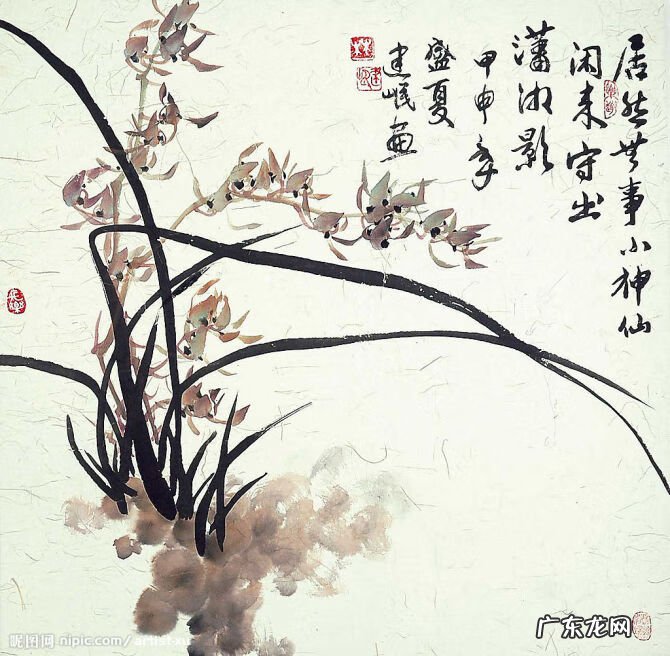 居然無事小神仙
闲来写出
潇湘影
甲申年
盛夏
建岷画
昵图网 nipic.com/artist-xu
广东龙网